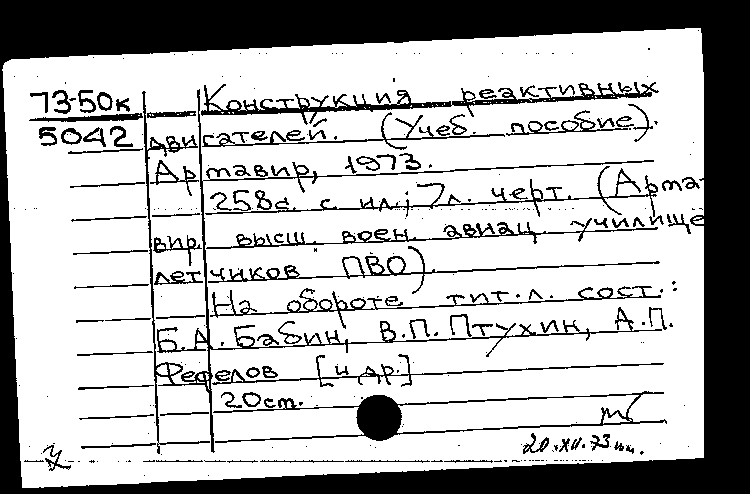 73-50к Конструкция реактивных
5042 двигателей. (Учеб. пособие).
Армавир, 1973.
258с. с ил.; 7л. черт. (Арма-
вир. высш. воен. авиац. училище
летчиков ПВО).
На обороте тит. л. сост.:
Б.А. Бабин, В.П. Птухин, А.П.
Фефелов [и др.]
20см.
20.XII.73